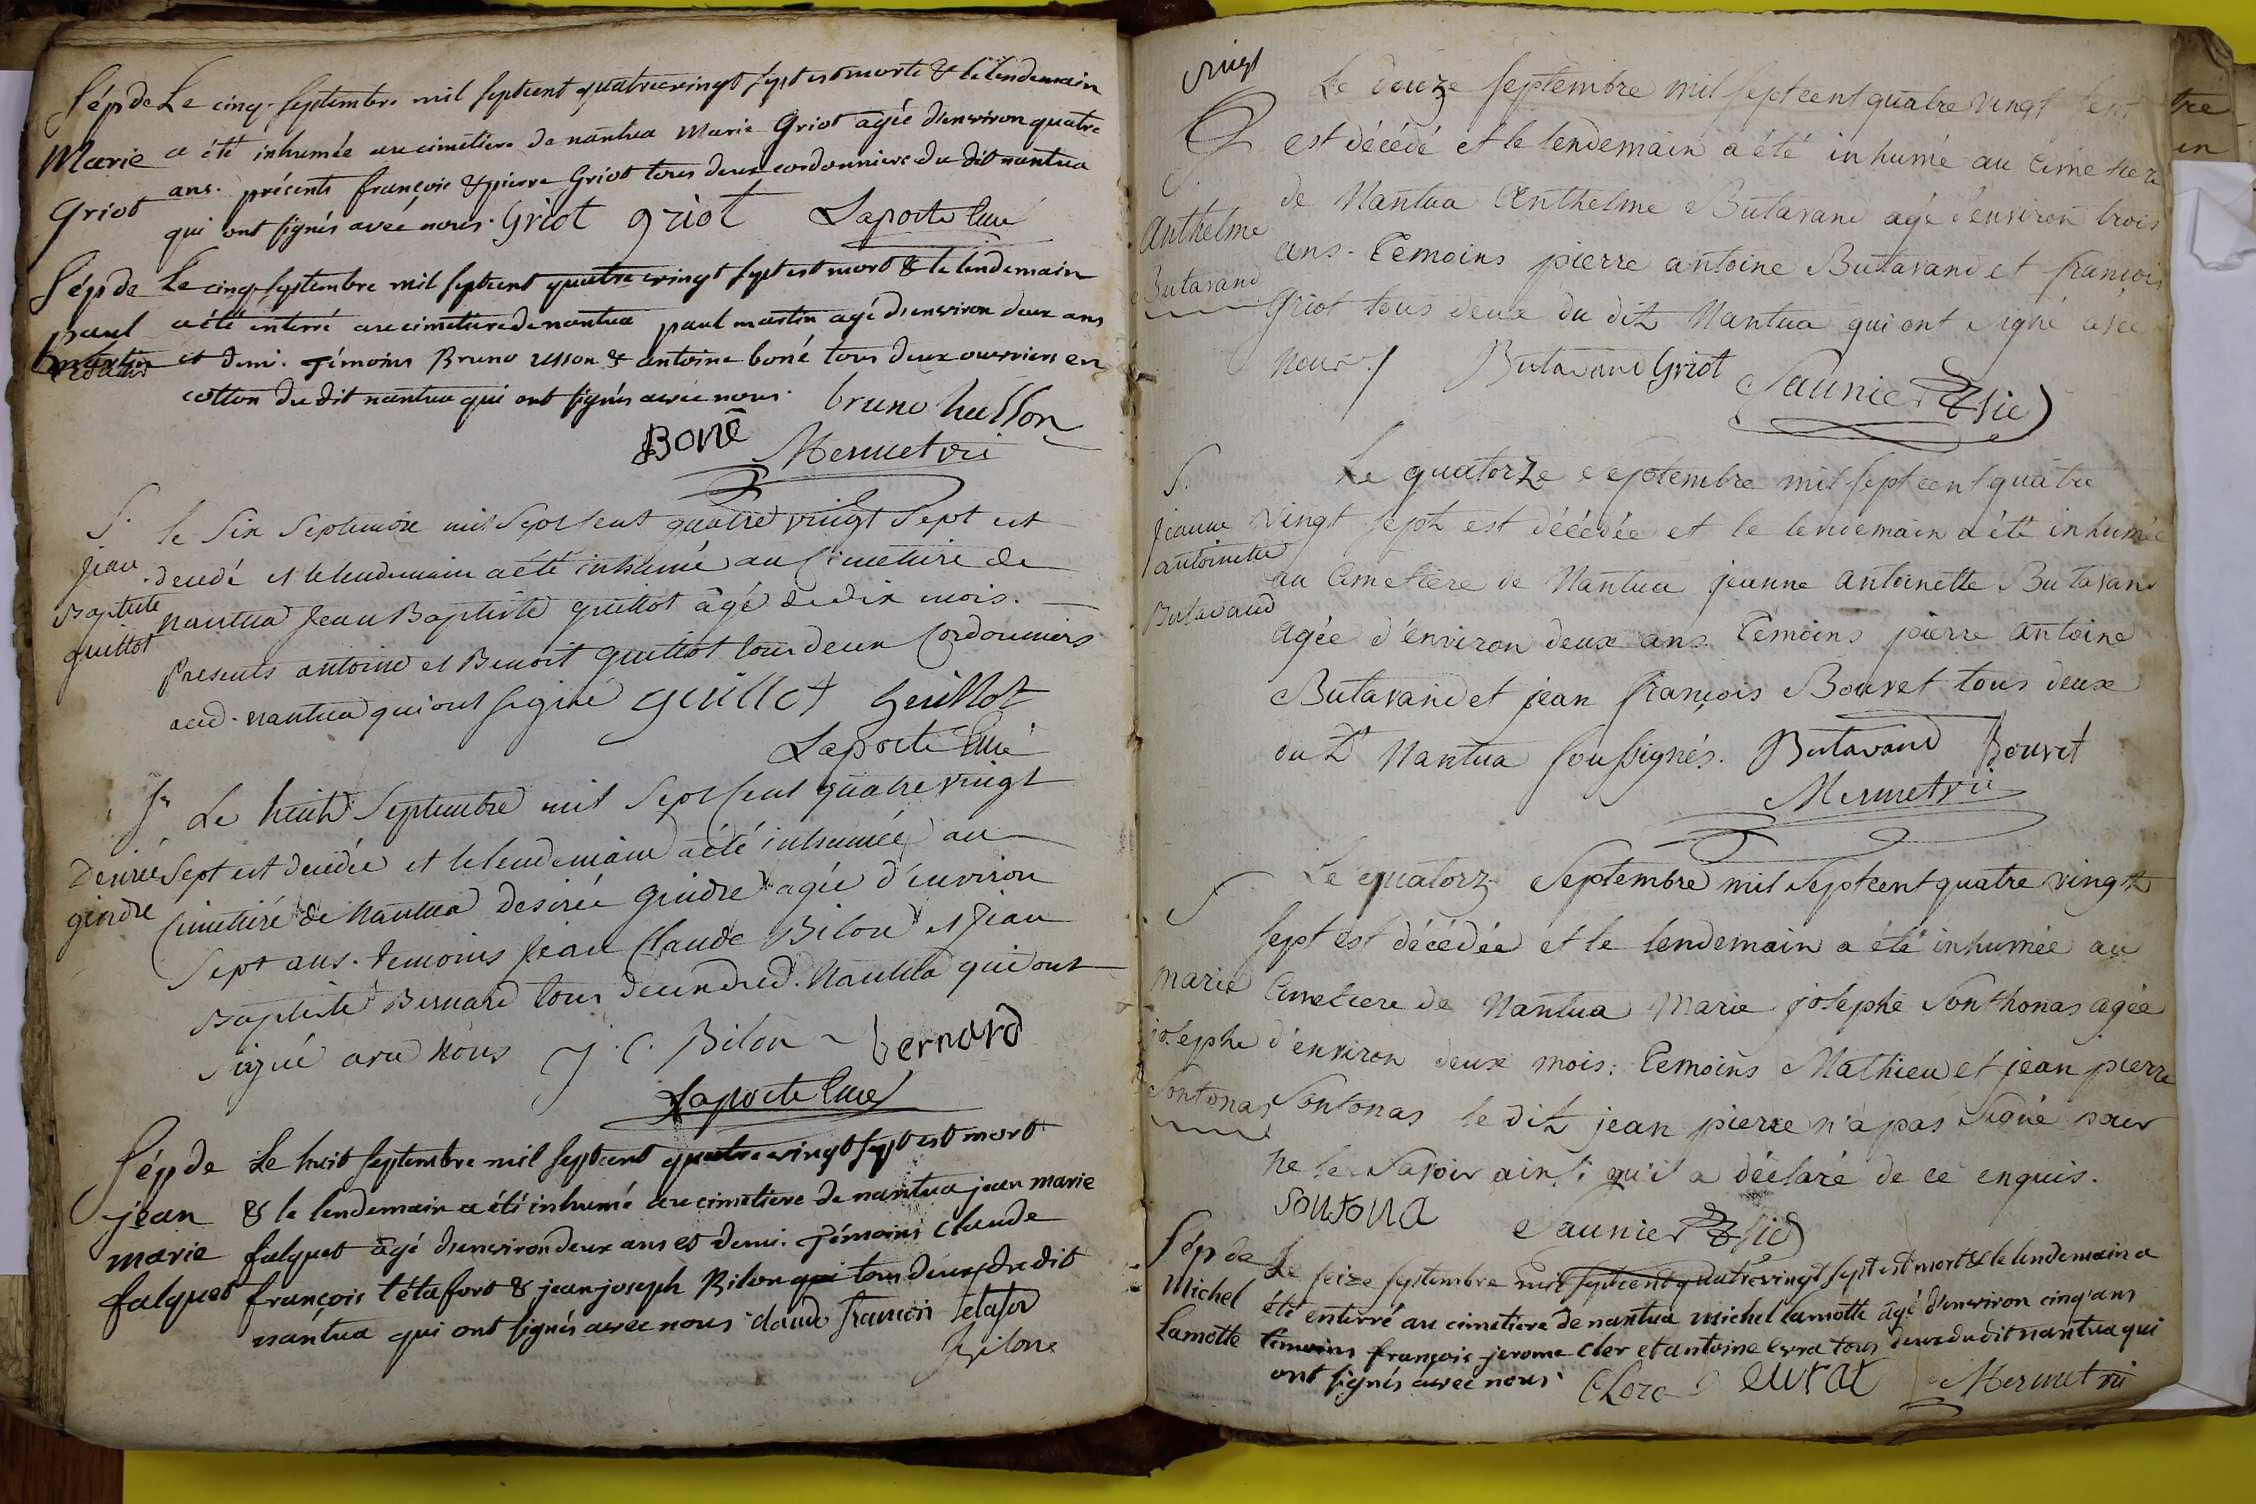 Sép de
Marie
Griot
Le cinq septembre mil septcent quatrevingt sept est morte & le lendemain
a été inhumée au cimetiere de nantua Marie Griot agée d'environ quatre
ans. présents françois & pierre Griot tous deux cordonniers du dit nantua
qui ont signés avec nous. Griot griot Laporte Curé
Sép de
paul
martin
Le cinq septembre mil septcent quatre vingt sept est mort & le lendemain
a été enterré au cimetiere de nantua paul martin agé d'environ deux ans
et demi. Témoins Bruno usson & antoine boné tous deux ouvriers en
cotton du dit nantua qui ont signés avec nous. bruno husson
Boné Mermet vic
S.
jean
Baptiste
guillot
le six Septembre mil Sept Cent quatre vingt Sept est
decedé et le lendemain a été inhumé au Cimetiere de
nantua Jean Baptiste guillot âgé de dix mois.
Presents antoine et Benoit guillot tous deux Cordonniers
aud. nantua qui ont signé guillot guillot
Laporte Curé
S.
Desirée
gindre
Le huit Septembre mil Sept Cent quatre vingt
Sept est decedée et le lendemain a été inhumée au
Cimetiére de Nantua desirée gindre agée d'environ
Sept ans. temoins Jean Claude Bilon et Jean
Baptiste Bernard tous deux dud. Nantua qui ont
signé avec Nous J. C. Bilon bernard
Laporte Curé
Sép de
jean
marie
falquet
Le huit septembre mil septcent quatre vingt sept est mort
& le lendemain a été inhumé au cimetiere de nantua jean marie
falquet âgé d'environ deux ans et demi. Témoins claude
françois tétafort & jean joseph Bilon qui tous deux du dit
nantua qui ont signés avec nous. claude francois tetafor
Bilone
vingt
S.
Anthelme
Butavand
Le douze septembre mil sept cent quatre vingt sept
est décédé et le lendemain a été inhumé au cimetiere
de Nantua Anthelme Butavand agé d'environ trois
ans. Temoins pierre antoine Butavand et françois
Griot tous deux du dit Nantua qui ont signé avec
nous./ Butavand Griot Saunier Vic
S.
Jeanne
antoinette
Butavand
Le quatorze septembre mil sept cent quatre
vingt sept est décédée et le lendemain a été inhumée
au Cimetière de Nantua jeanne Antoinette Butavand
agée d'environ deux ans. Temoins pierre Antoine
Butavand et jean françois Bouvet tous deux
du dt Nantua soussignés. Butavand Bouvet
Mermet vic
S
marie
josephe
Sontonas
Le quatorze Septembre mil Sept cent quatre vingt
sept est décédée et le lendemain a été inhumée au
Cimetiere de Nantua Marie josephe Sonthonas agée
d'environ deux mois: Temoins Mathieu et jean pierre
Sontonas le dit jean pierre n'a pas Signé pour
ne le Savoir ainsi qu'il a déclaré de ce enquis.
sontona Saunier Vic
Sép de
Michel
Lamotte
Le seize septembre mil septcent quatrevingt sept est mort & le lendemain a
été enterré au cimetiere de nantua michel lamotte âgé d'environ cinq ans
témoins françois jerome cler et antoine evra tous deux du dit nantua qui
ont signés avec nous. evrat Mermet vic